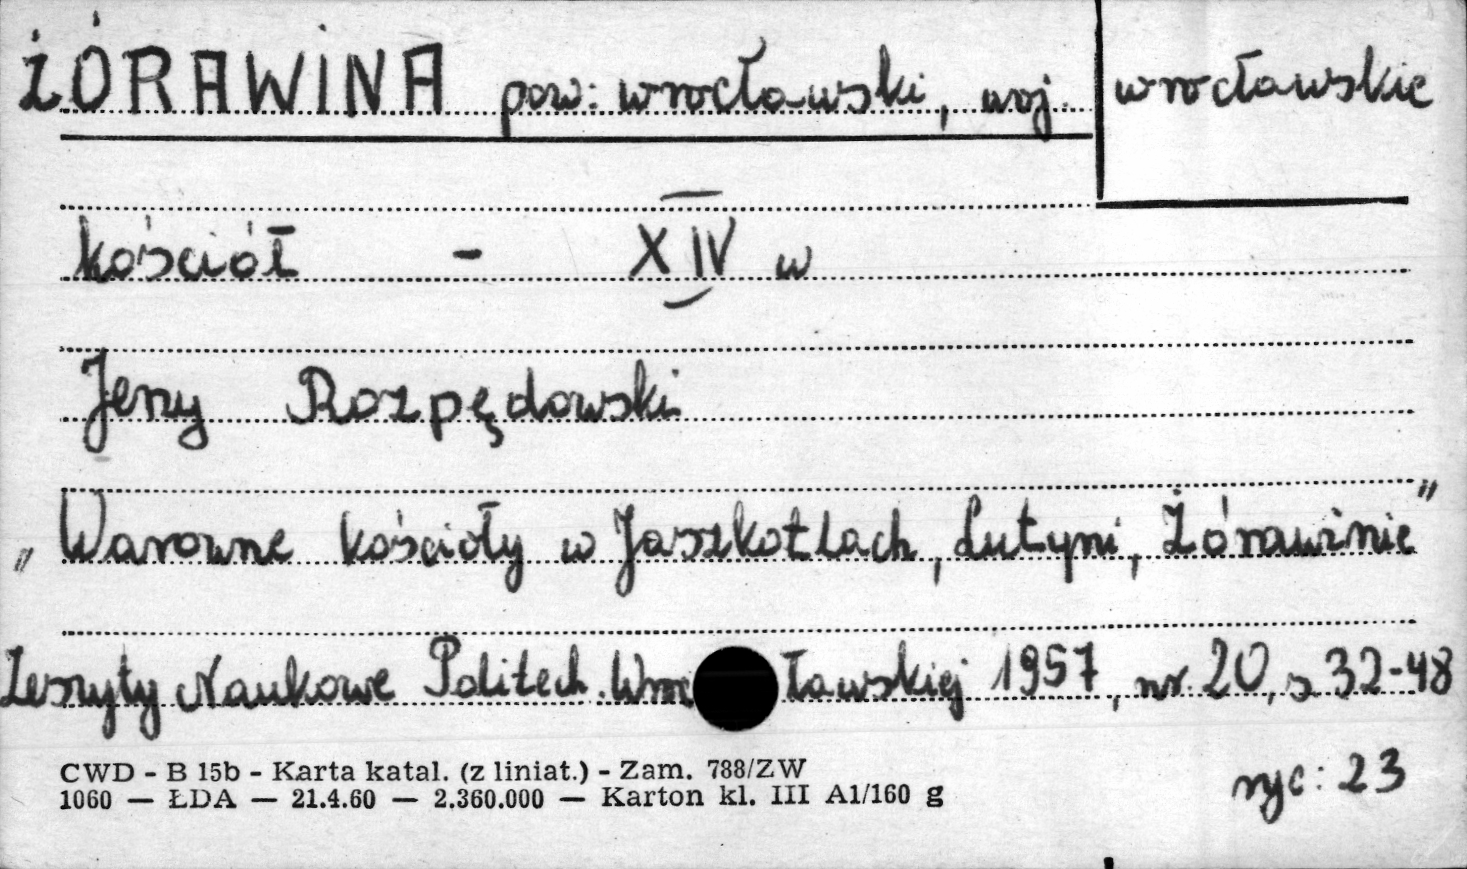 ŻÓRAWINA pow: wrocławski, woj. wrocławskie
kościół - XIV w
Jerzy Rozpędowski
„Warowne kościoły w Jaszkotlach, Lutyni, Żórawinie"
Zeszyty Naukowe Politech. Wrocławskiej 1957, nr 20, s 32-48
ryc: 23
CWD - B 15b - Karta katal. (z liniat.) - Zam. 788/ZW
1060 — ŁDA — 21.4.60 — 2.360.000 — Karton kl. III A1/160 g